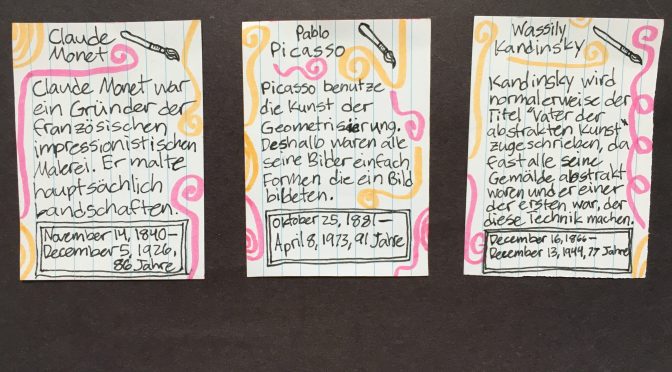 Claude
Monet
Claude Monet war
ein Gründer der
französischen
impressionistischen
Malerei. Er malte
hauptsächlich
Landschaften.
November 14, 1840–
December 5, 1926,
86 Jahre
Pablo
Picasso
Picasso benutze
die Kunst der
Geometrisierung.
Deshalb waren alle
seine Bilder einfach
Formen die ein Bild
bildeten.
Oktober 25, 1881–
April 8, 1973, 91 Jahre
Wassily
Kandinsky
Kandinsky wird
normalerweise der
Titel "Vater der
abstrakten Kunst"
zugeschrieben, da
fast alle seine
Gemälde abstrakt
waren und er einer
der ersten war, der
diese Technik machen.
December 16, 1866–
December 13, 1944, 77 Jahre